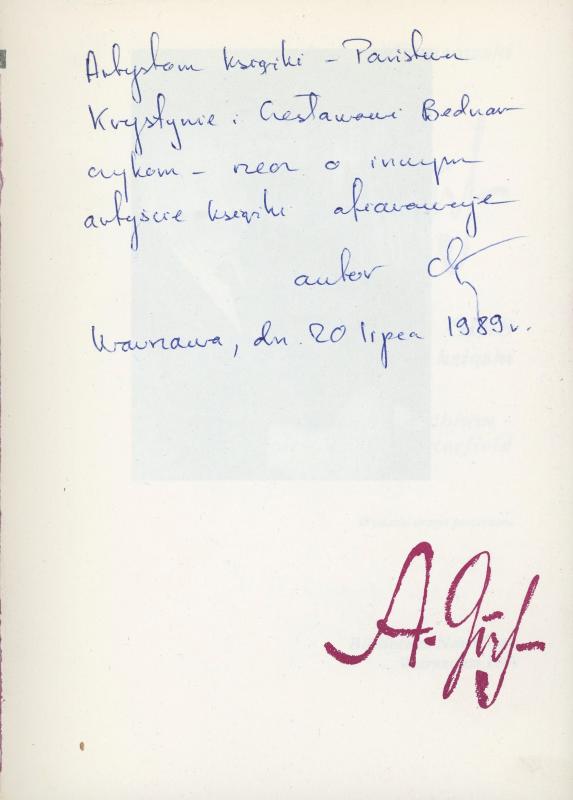 Artystom książki – Państwu
Krystynie i Czesławowi Bednar
czykom – rzecz o innym
artyście książki ofiarowuje
autor
Warszawa, dn. 20 lipca 1989 r.
A.